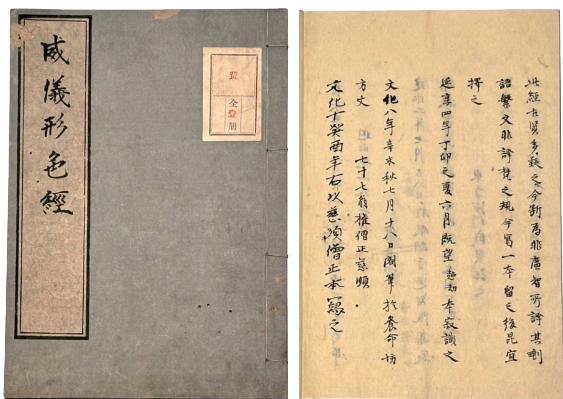 威儀形色經
全壹冊
此經古賢多疑之今斷為非廣智所譯其則
語繁文非譯梵之規今寫一本留之後昆宜
擇之
延享四年丁卯之夏六月既望 本寂識之
文化八年辛未秋七月十八日閣筆於養命坊
方丈 七十七翁權僧正慈順
文化十癸酉年右以慈順僧正本寫之